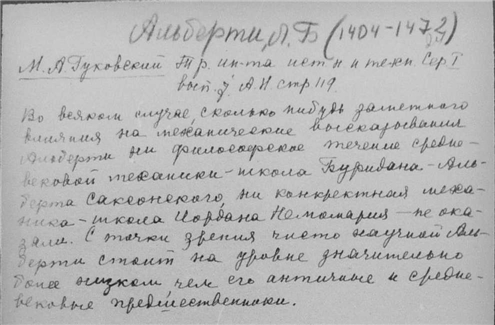 Альберти, Л.Б (1404-1472)
М.А.Гуковский Тр. ин-та ист н и техн. Сер I
вып. А.Н. стр 119.
Во всяком случае, сколько нибудь заметного
влияния на механические высказывания
Альберти ни философское течение средне-
вековой механики-школа Буридана-Аль-
берта Саксонского, ни конкретная меха-
ника-школа Иордана Неморария-не ока-
зали. С точки зрения чисто научной Аль-
берти стоит на уровне значительно
более низком чем его античные и средне-
вековые предшественники.